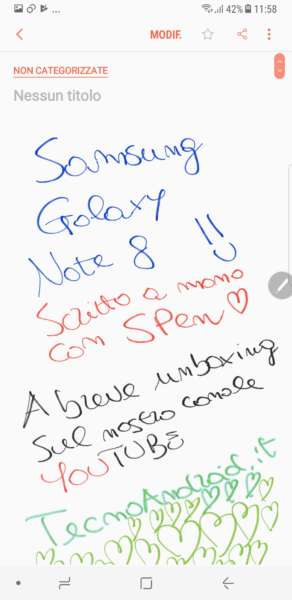 42% 11:58
MODIF.
NON CATEGORIZZATE
Nessun titolo
Samsung
Galaxy
Note 8 !!
Scritto a mano
con SPen
A breve unboxing
sul nostro canale
YOUTUBE
TecnoAndroid.it